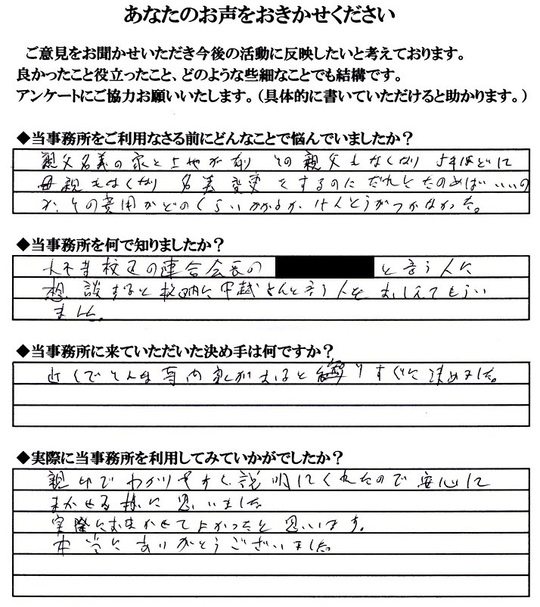 あなたのお声をおきかせください
ご意見をお聞かせいただき今後の活動に反映したいと考えております。
良かったこと役立ったこと、どのような些細なことでも結構です。
アンケートにご協力お願いいたします。（具体的に書いていただけると助かります。）
◆当事務所をご利用なさる前にどんなことで悩んでいましたか？
親父名義の家と土地が有り その親父もなくなり 5年ほどに
母親もなくなり 名義変更をするのにだれとたのめばいいの
か、その費用がどのくらいかかるか、けんとうがつかなかった。
◆当事務所を何で知りましたか？
連合会長の と言う人に
想談すると 中越さんと言う人を おしえてもらい
ました。
◆当事務所に来ていただいた決め手は何ですか？
近くでそんな専門家がおると すぐに決めました。
◆実際に当事務所を利用してみていかがでしたか？
親切でわかりやすく説明してくれたので安心して
まかせる様に思いました
実際におまかせてよかったと思います。
本当にありがとうございました